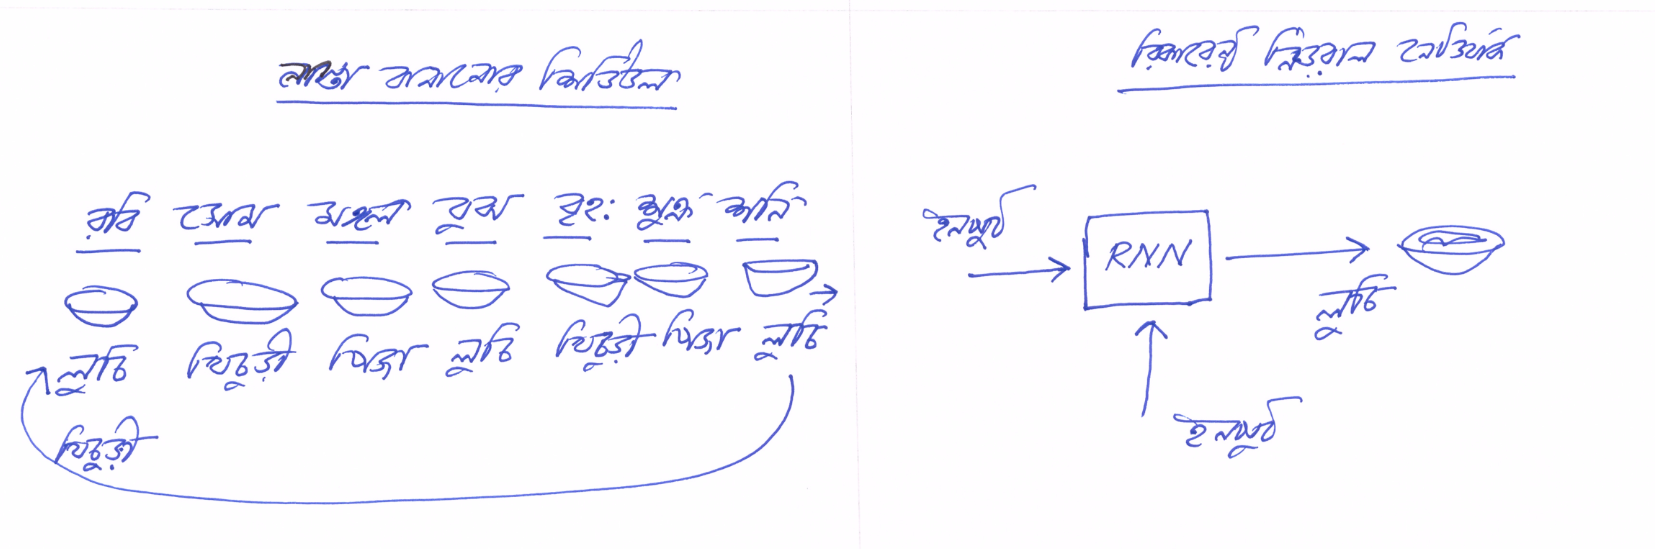 নাস্তা বানানোর শিডিউল
রবি সোম মঙ্গল বুধ বৃহ: শুক্র শনি
লুচি খিচুড়ী পিজা লুচি খিচুড়ী পিজা লুচি
খিচুড়ী
রিকারেন্ট নিউরাল নেটওয়ার্ক
ইনপুট
RNN
লুচি
ইনপুট